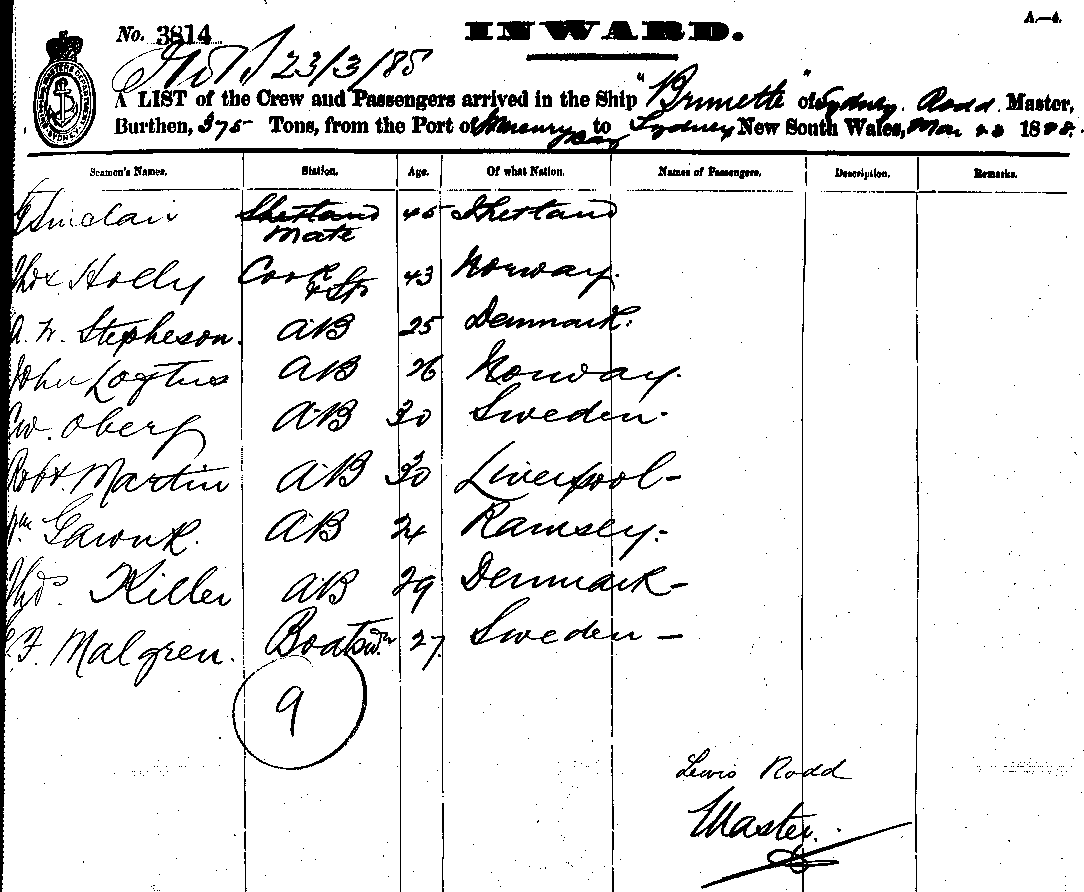 A.—4.
INWARD.
No. 3814
23/3/88
A LIST of the Crew and Passengers arrived in the Ship "Brunette" of Sydney. Rodd Master,
Burthen, 375 Tons, from the Port of Mercury Bay to Sydney New South Wales, Mar 23 1888.
Seamen's Names. Station. Age. Of what Nation. Names of Passengers. Description. Remarks.
Sinclair Shetland Mate 45 Shetland
Holly Cook & St 43 Norway.
A. W. Stepheson. AB 25 Denmark.
John AB 26 Norway.
Oberg AB 30 Sweden.
Robt. Martin AB 30 Liverpool -
Wm AB 24 Ramsey.
Killer AB 29 Denmark -
F. Malgren. Boatswn 27 Sweden -
9
Lewis Rodd
Master.